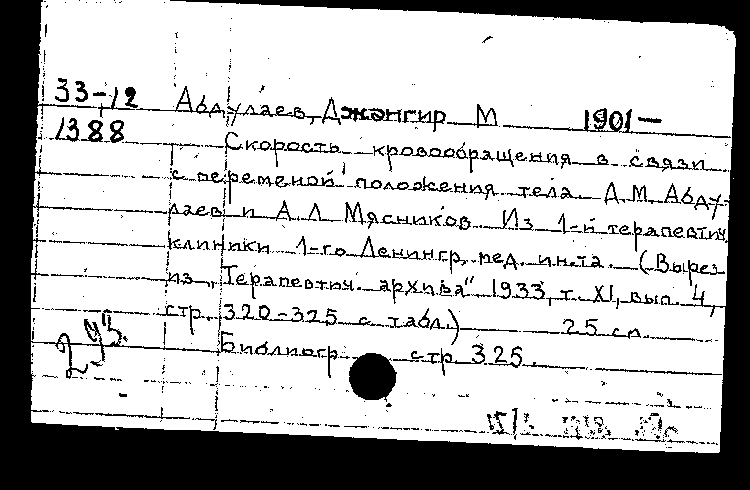 33-12
Абдулаев, Джангир М 1901—
1388
Скорость кровообращения в связи
с переменой положения тела. Д.М. Абду-
лаев и А.Л. Мясников. Из 1-й терапевтич.
клиники 1-го Ленингр. мед. ин-та. (Вырез
из „Терапевтич. архива" 1933, т. XI, вып. 4,
стр. 320-325 с табл.) 25 см.
Библиогр. стр. 325.